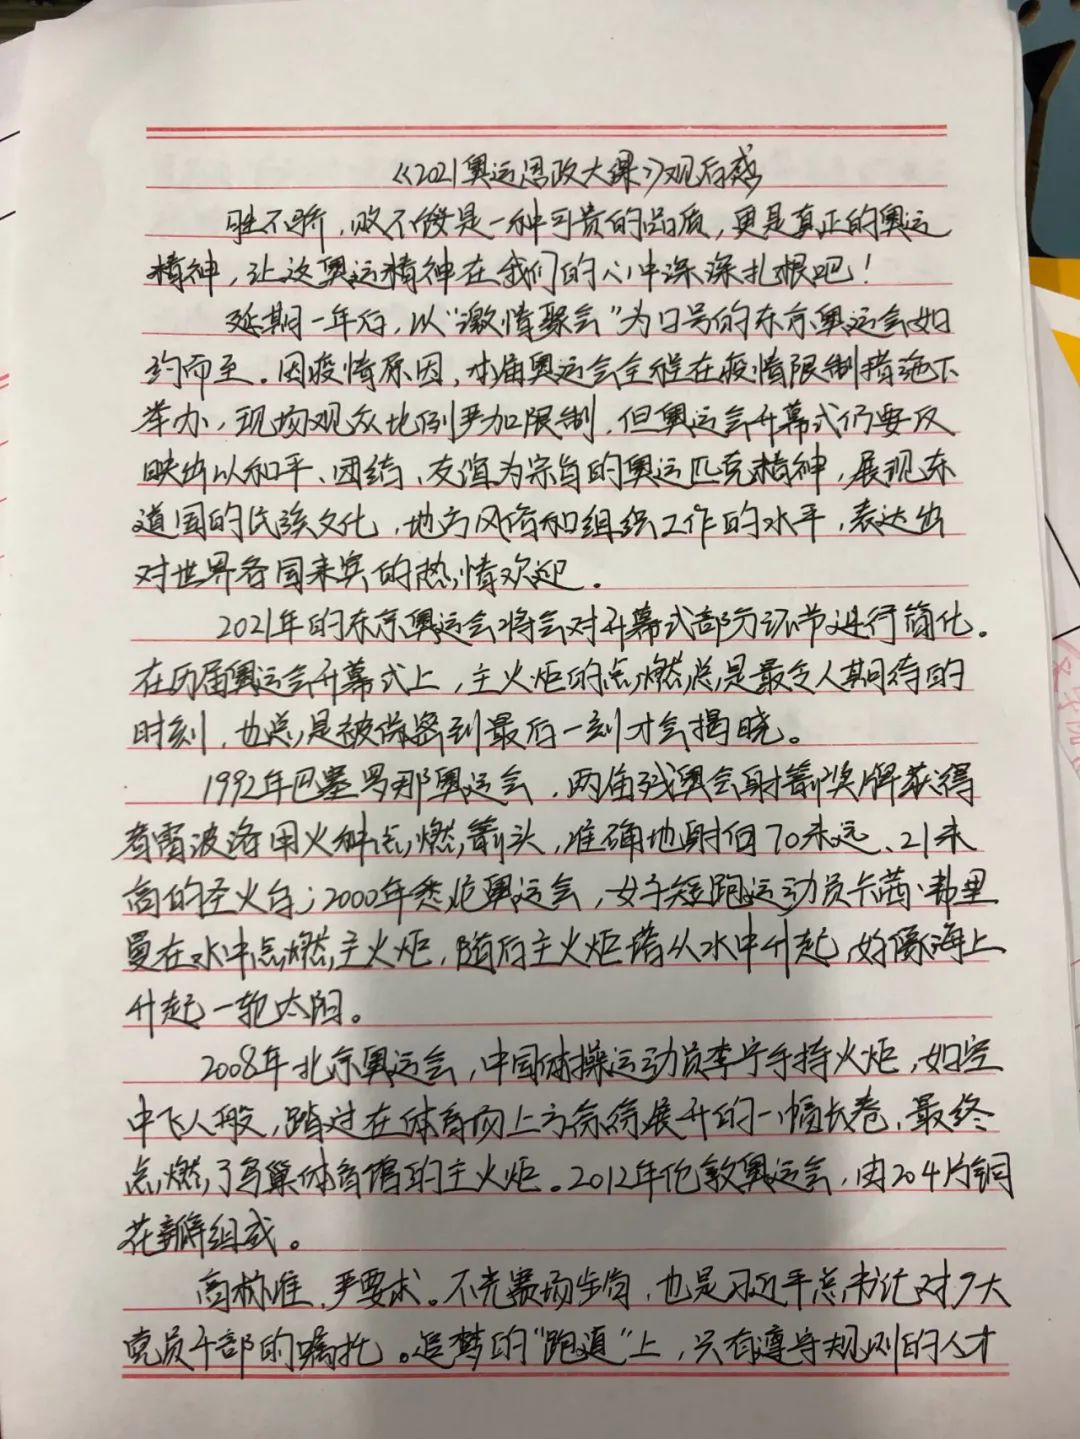 《2021奥运思政大课》观后感
胜不骄，败不馁是一种可贵的品质，更是真正的奥运
精神，让这奥运精神在我们的心中深深扎根吧！
延期一年后，以“激情聚会”为口号的东京奥运会如
约而至。因疫情原因，本届奥运会全程在疫情限制措施下
举办，现场观众比例严加限制，但奥运会开幕式仍要反
映出以和平、团结、友谊为宗旨的奥运匹克精神，展现东
道国的民族文化，地方风俗和组织工作的水平，表达出
对世界各国来宾的热情欢迎。
2021年的东京奥运会将会对开幕式部分环节进行简化。
在历届奥运会开幕式上，主火炬的点燃总是最令人期待的
时刻，也总是被保密到最后一刻才会揭晓。
1992年巴塞罗那奥运会，两届残奥会射箭奖牌获得
者雷波洛用火种点燃箭头，准确地射向70米远、21米
高的圣火台；2000年悉尼奥运会，女子短跑运动员卡茜·弗里
曼在水中点燃主火炬，随后主火炬塔从水中升起，好像海上
升起一轮太阳。
2008年北京奥运会，中国体操运动员李宁手持火炬，如空
中飞人般，踏过在体育场上方徐徐展开的一幅长卷，最终
点燃了鸟巢体育馆的主火炬。2012年伦敦奥运会，由204片铜
花瓣组成。
高标准、严要求。不光赛场生肖，也是习近平总书记对广大
党员干部的嘱托。追梦的“跑道”上，只有遵守规则的人才